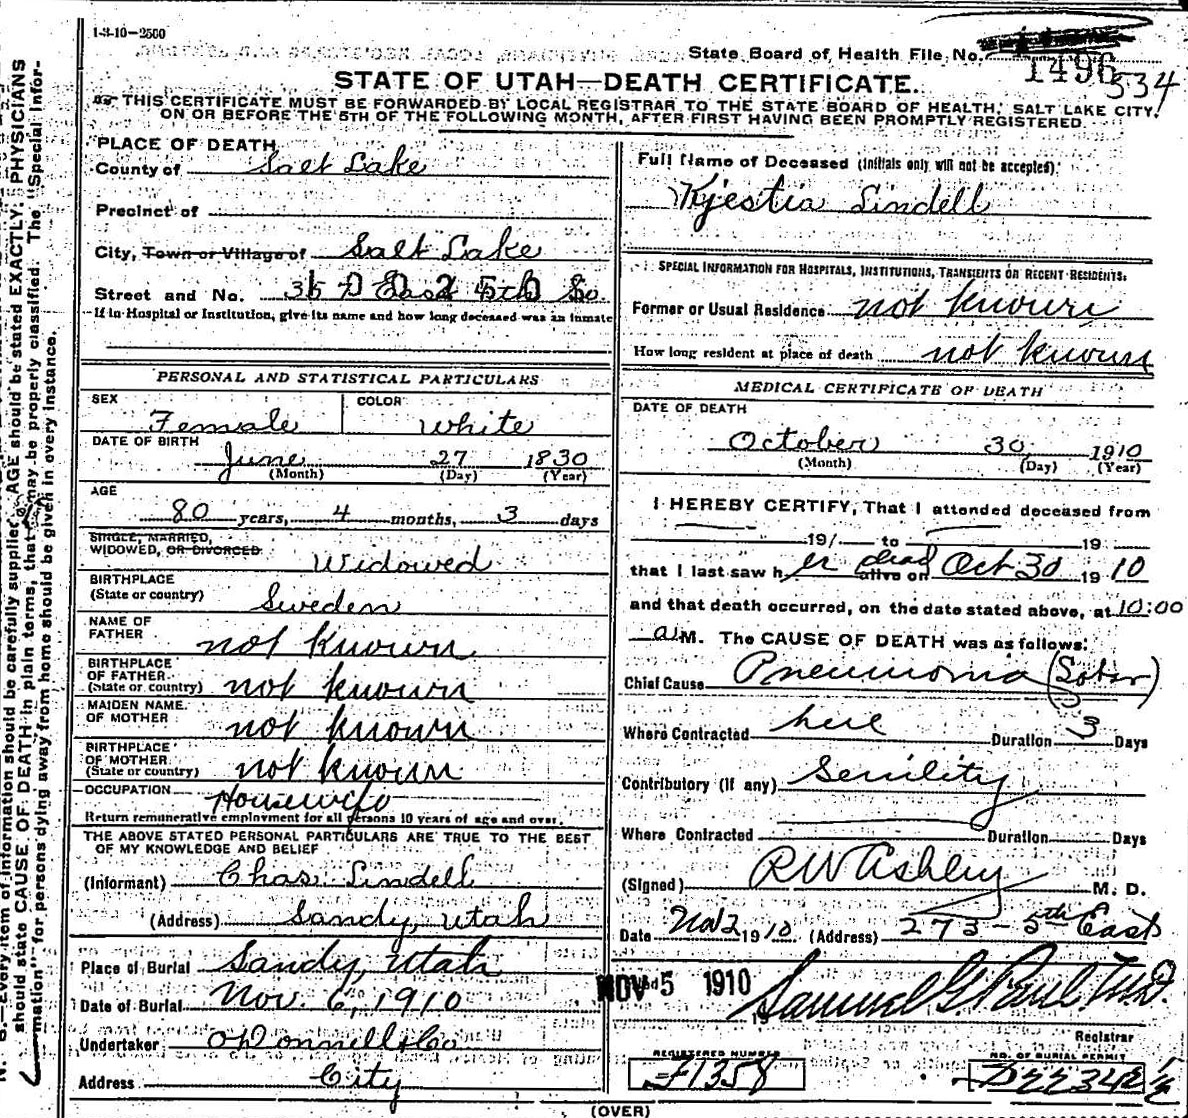 1-3-10-2500
State Board of Health File No.
1496
534
STATE OF UTAH—DEATH CERTIFICATE.
THIS CERTIFICATE MUST BE FORWARDED BY LOCAL REGISTRAR TO THE STATE BOARD OF HEALTH, SALT LAKE CITY,
ON OR BEFORE THE 5TH OF THE FOLLOWING MONTH, AFTER FIRST HAVING BEEN PROMPTLY REGISTERED.
PLACE OF DEATH
County of Salt Lake
Precinct of
City, Town or Village of Salt Lake
Street and No. East So.
If in Hospital or Institution, give its name and how long deceased was an inmate
PERSONAL AND STATISTICAL PARTICULARS
SEX
Female
COLOR
White
DATE OF BIRTH
June 27 1830
(Month) (Day) (Year)
AGE
80 years, 4 months, 3 days
SINGLE, MARRIED,
WIDOWED, OR DIVORCED. Widowed
BIRTHPLACE
(State or country) Sweden
NAME OF
FATHER not known
BIRTHPLACE
OF FATHER
(State or country) not known
MAIDEN NAME
OF MOTHER not known
BIRTHPLACE
OF MOTHER
(State or country) not known
OCCUPATION Housewife
Return remunerative employment for all persons 10 years of age and over.
THE ABOVE STATED PERSONAL PARTICULARS ARE TRUE TO THE BEST
OF MY KNOWLEDGE AND BELIEF
(Informant) Chas. Lindell
(Address) Sandy, Utah
Place of Burial Sandy, Utah
Date of Burial Nov. 6, 1910
Undertaker O'Donnell & Co
Address City
Full Name of Deceased (Initials only will not be accepted):
Kjestia Lindell
SPECIAL INFORMATION FOR HOSPITALS, INSTITUTIONS, TRANSIENTS OR RECENT RESIDENTS.
Former or Usual Residence not known
How long resident at place of death not known
MEDICAL CERTIFICATE OF DEATH
DATE OF DEATH
October 30, 1910
(Month) (Day) (Year)
I HEREBY CERTIFY, That I attended deceased from
191 to 19
that I last saw her dead alive on Oct 30 1910
and that death occurred, on the date stated above, at 10:00
a M. The CAUSE OF DEATH was as follows:
Chief Cause Pneumonia (Lobar)
Where Contracted here Duration 3 Days
Contributory (if any) Senility
Where Contracted Duration Days
(Signed) RW Ashley M. D.
Date Nov 2 1910 (Address) 273 - 5th East
NOV 5 1910 Samuel G. Paul M.D.
Registrar
REGISTERED NUMBER
F1358
NO. OF BURIAL PERMIT
D22342 1/2
(OVER)
N. B.—Every item of information should be carefully supplied. AGE should be stated EXACTLY; PHYSICIANS
should state CAUSE OF DEATH in plain terms, that it may be properly classified. The "Special Infor-
mation" for persons dying away from home should be given in every instance.